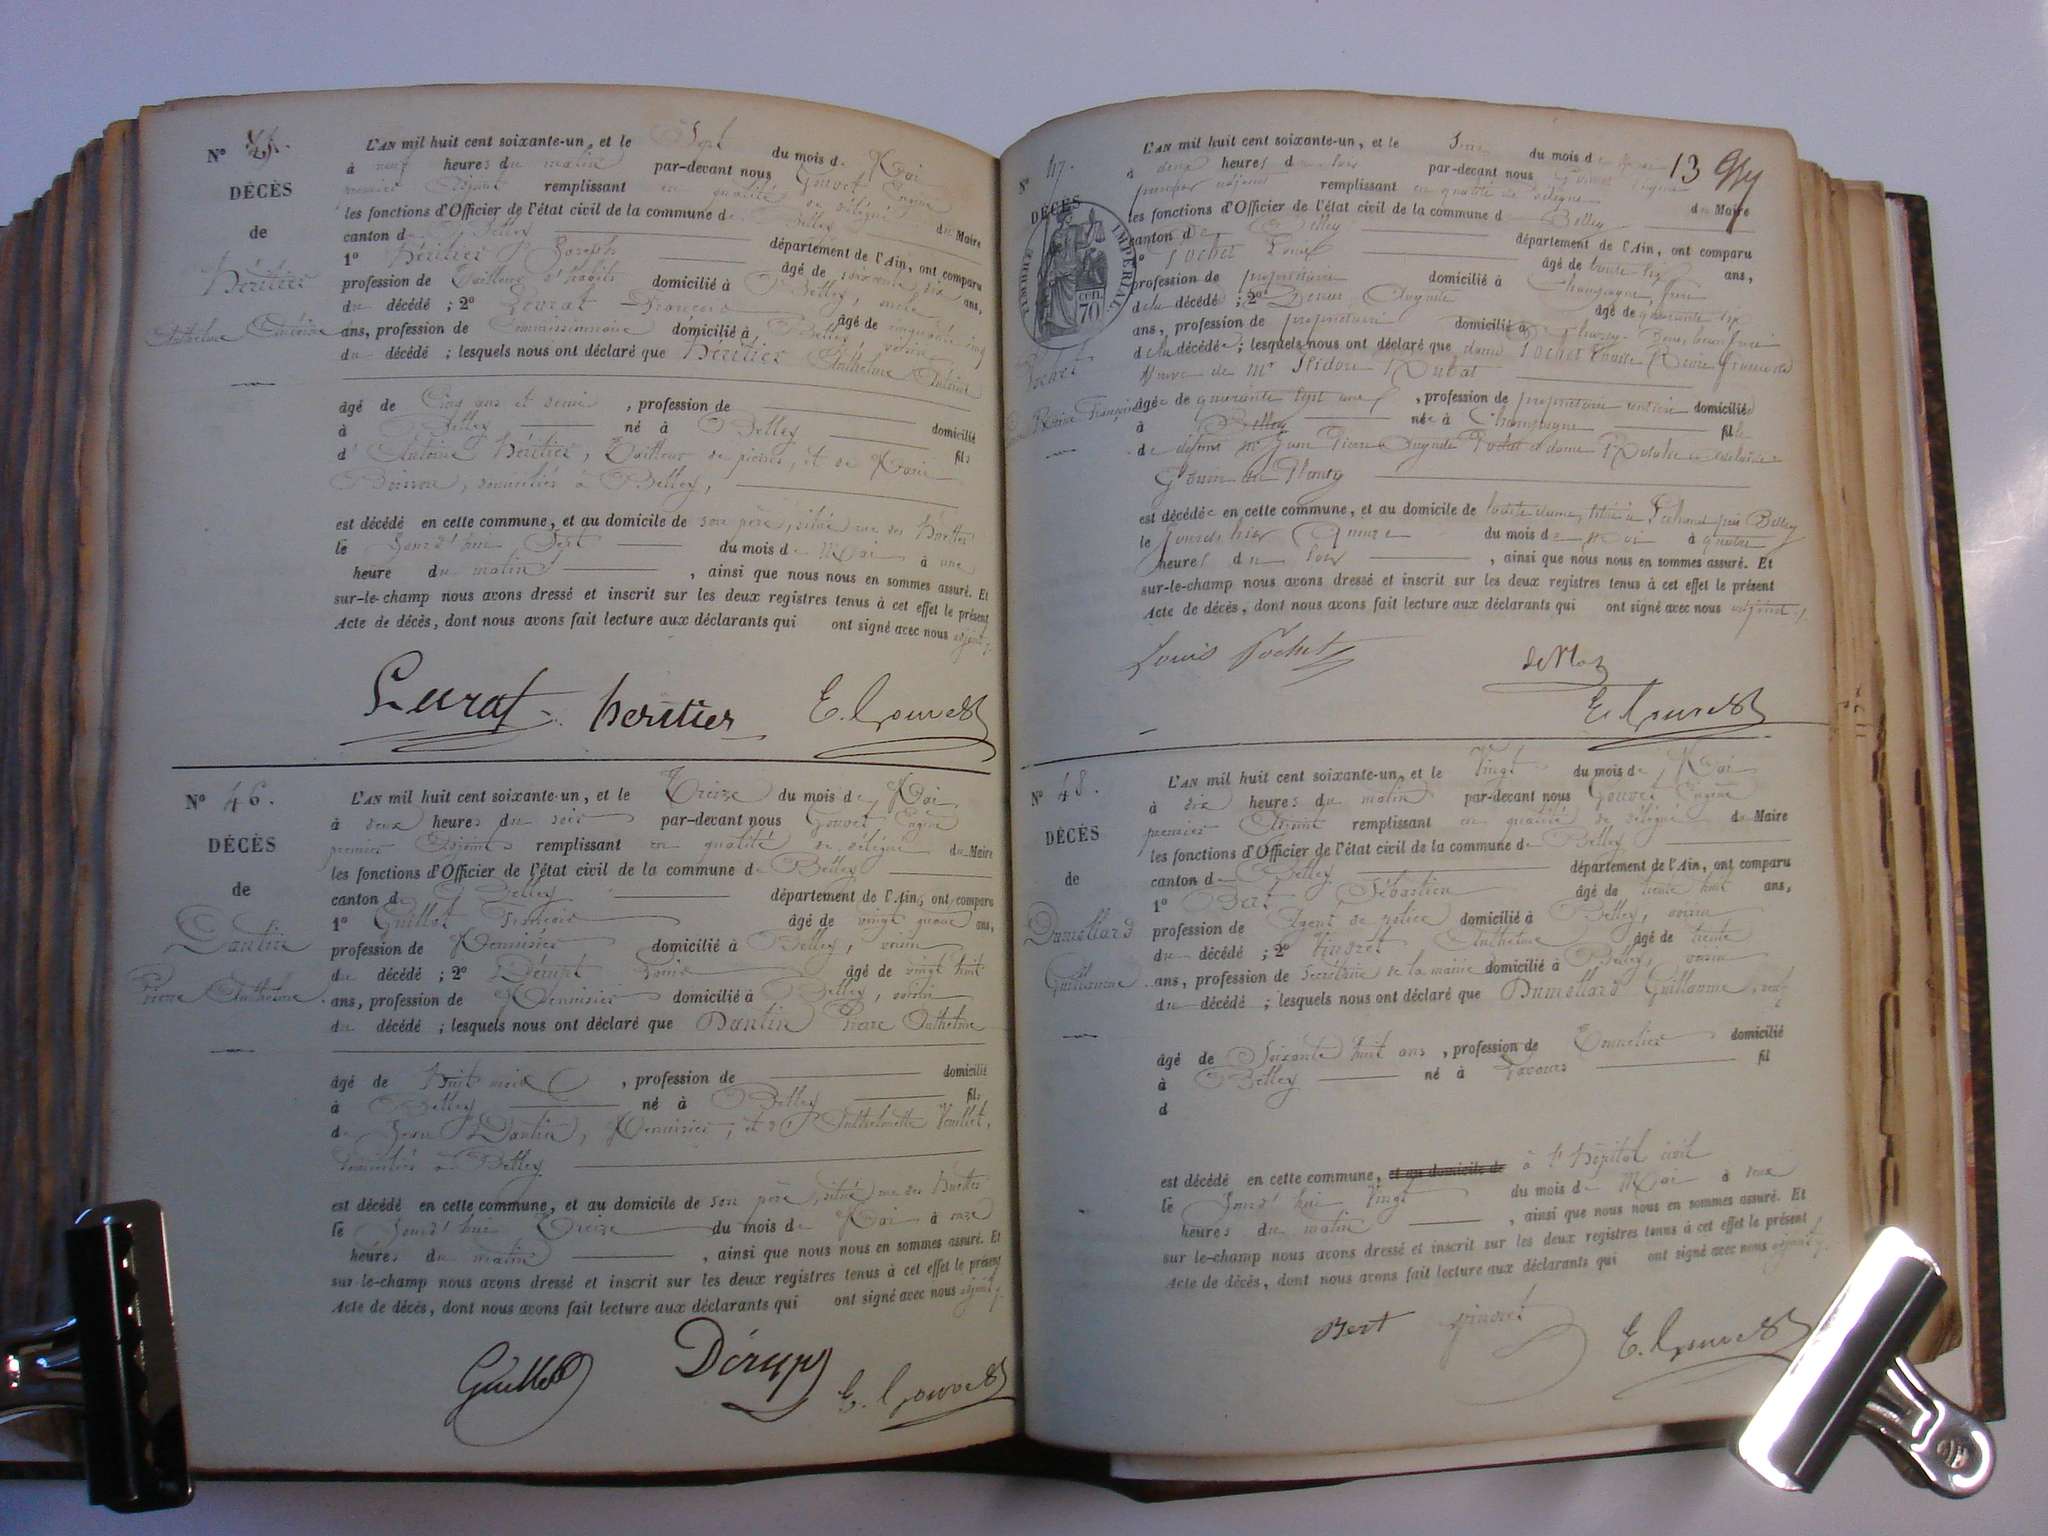 N° 45.
DÉCÈS
de
Héritier
Anthelme Antoine
L'AN mil huit cent soixante-un, et le Sept du mois de Mai
à neuf heures du matin par-devant nous Gouvet Eugène
premier Adjoint remplissant en qualité de délégué du Maire
les fonctions d'Officier de l'état civil de la commune de Belley
canton de Belley département de l'Ain, ont comparu
1° Héritier Joseph âgé de soixante dix ans,
profession de Tailleur d'habits domicilié à Belley, oncle
du décédé ; 2° Levrat François âgé de cinquante cinq
ans, profession de Commissionnaire domicilié à Belley, voisin
du décédé ; lesquels nous ont déclaré que Héritier Anthelme Antoine
âgé de Cinq ans et demi , profession de domicilié
à Belley né à Belley fils
d'Antoine Héritier, Tailleur de pierres, et de Marie
domiciliés à Belley,
est décédé en cette commune, et au domicile de son père, situé rue des
le Jourd'hui Sept du mois de Mai à une
heure du matin , ainsi que nous nous en sommes assuré. Et
sur-le-champ nous avons dressé et inscrit sur les deux registres tenus à cet effet le présent
Acte de décès, dont nous avons fait lecture aux déclarants qui ont signé avec nous adjoint
Levrat heritier E. Gouvet
N° 46.
DÉCÈS
de
Dantin
Pierre Anthelme
L'AN mil huit cent soixante-un, et le Treize du mois de Mai
à deux heures du soir par-devant nous Gouvet Eugène
premier Adjoint remplissant en qualité de délégué du Maire
les fonctions d'Officier de l'état civil de la commune de Belley
canton de Belley département de l'Ain, ont comparu
1° Guillot François âgé de vingt quatre ans,
profession de Menuisier domicilié à Belley, voisin
du décédé ; 2° Dérupt Louis âgé de vingt huit
ans, profession de Menuisier domicilié à Belley, voisin
du décédé ; lesquels nous ont déclaré que Dantin Pierre Anthelme
âgé de Huit mois , profession de domicilié
à Belley né à Belley fils
de Jean Dantin, Menuisier, et d'Anthelmette Veuillet,
domiciliés à Belley
est décédé en cette commune, et au domicile de son père, situé rue des
le Jourd'hui Treize du mois de Mai à onze
heures du matin , ainsi que nous nous en sommes assuré. Et
sur-le-champ nous avons dressé et inscrit sur les deux registres tenus à cet effet le présent
Acte de décès, dont nous avons fait lecture aux déclarants qui ont signé avec nous adjoint
Guillot Dérupt E. Gouvet
13
N° 47.
DÉCÈS
TIMBRE IMPÉRIAL
CEN.
70
Pochet
Reine Françoise
L'AN mil huit cent soixante-un, et le du mois de
à deux heures du soir par-devant nous Gouvet Eugène
premier adjoint remplissant en qualité de délégué du Maire
les fonctions d'Officier de l'état civil de la commune de Belley
canton de Belley département de l'Ain, ont comparu
1° Pochet Louis âgé de trente-six ans,
profession de propriétaire domicilié à Champagne, frère
de la décédée ; 2° Auguste âgé de quarante six
ans, profession de propriétaire domicilié à beau frère
de la décédée ; lesquels nous ont déclaré que dame Pochet Reine Françoise
Veuve de Mr Isidore Rubat
âgée de quarante sept ans , profession de propriétaire rentière domiciliée
à Belley née à Champagne fille
de défunt Mr Jean Pierre Auguste Pochet et dame
est décédée en cette commune, et au domicile de ladite dame, situé à près Belley
le Jourd'hier Quinze du mois de Mai à quatre
heures du soir , ainsi que nous nous en sommes assuré. Et
sur-le-champ nous avons dressé et inscrit sur les deux registres tenus à cet effet le présent
Acte de décès, dont nous avons fait lecture aux déclarants qui ont signé avec nous adjoint
Louis Pochet E. Gouvet
N° 48.
DÉCÈS
de
Dumollard
Guillaume
L'AN mil huit cent soixante-un, et le Vingt du mois de Mai
à dix heures du matin par-devant nous Gouvet Eugène
premier Adjoint remplissant en qualité de délégué du Maire
les fonctions d'Officier de l'état civil de la commune de Belley
canton de Belley département de l'Ain, ont comparu
1° Bert Sébastien âgé de trente huit ans,
profession de Agent de police domicilié à Belley, voisin
du décédé ; 2° Vindret Anthelme âgé de trente
ans, profession de Secrétaire de la mairie domicilié à Belley, voisin
du décédé ; lesquels nous ont déclaré que Dumollard Guillaume, veuf
âgé de Soixante huit ans , profession de Tonnelier domicilié
à Belley né à Lavours fil
d
est décédé en cette commune, et au domicile de à l'hôpital civil
le Jourd'hui Vingt du mois de Mai à deux
heures du matin , ainsi que nous nous en sommes assuré. Et
sur le-champ nous avons dressé et inscrit sur les deux registres tenus à cet effet le présent
Acte de décès, dont nous avons fait lecture aux déclarants qui ont signé avec nous adjoint
Bert Vindret E. Gouvet